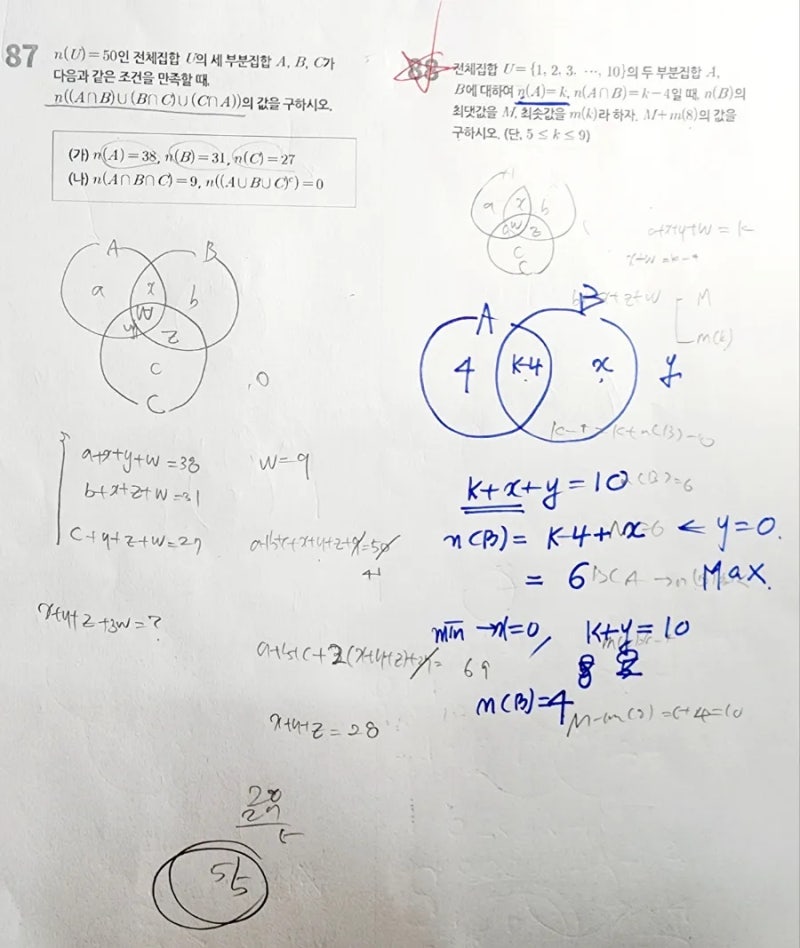 87
n(U)=50인 전체집합 U의 세 부분집합 A, B, C가
다음과 같은 조건을 만족할 때,
n((A∩B)∪(B∩C)∪(C∩A))의 값을 구하시오.
(가) n(A)=38, n(B)=31, n(C)=27
(나) n(A∩B∩C)=9, n((A∪B∪C)ᶜ)=0
A B
a x b
w
y z
C
C
0
a+x+y+w=38
w=9
b+x+z+w=31
C+y+z+w=27
a+b+c+x+y+z+9=50
41
x+y+z+3w=?
a+b+c+2(x+y+z)+27=
69
x+y+z=28
28
27
55
88
전체집합 U={1, 2, 3, ⋯, 10}의 두 부분집합 A,
B에 대하여 n(A)=k, n(A∩B)=k-4일 때, n(B)의
최댓값을 M, 최솟값을 m(k)라 하자. M+m(8)의 값을
구하시오. (단, 5≤k≤9)
a x b
w z
C
C
a+x+y+w=k
x+w=k-4
x+z+w
M
m(k)
A B
4 k-4 x y
k+x+y=10
n(B)= k-4+x ← y=0.
= 6 Max.
min →x=0, k+y=10
8 2
n(B)=4